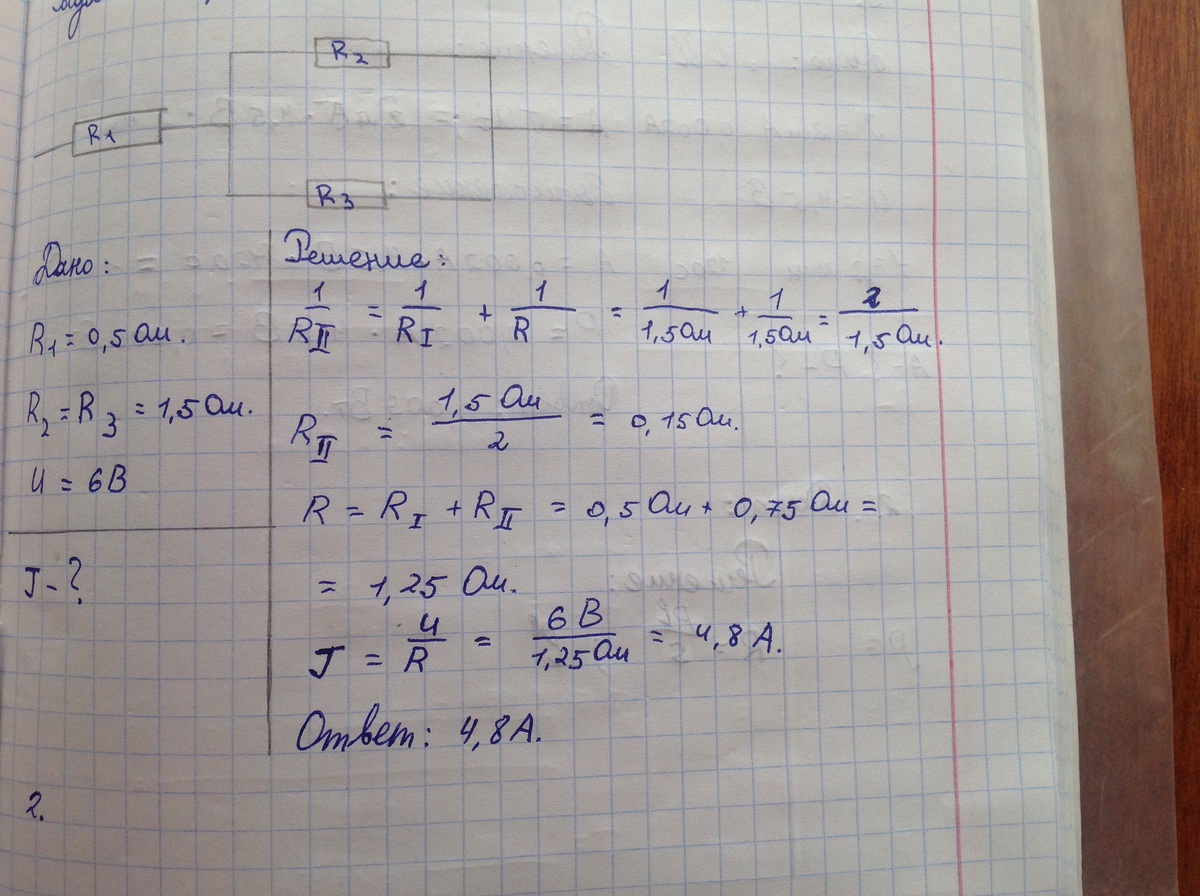 R2
R1
R3
Дано:
R1 = 0,5 Ом.
R2 = R3 = 1,5 Ом.
U = 6В
J - ?
Решение:
1/RII = 1/RI + 1/R = 1/1,5Ом + 1/1,5Ом = 2/1,5Ом.
RII = 1,5 Ом/2 = 0,15 Ом.
R = RI + RII = 0,5 Ом + 0,75 Ом =
= 1,25 Ом.
J = U/R = 6 В/1,25 Ом = 4,8 А.
Ответ: 4,8 А.
2.